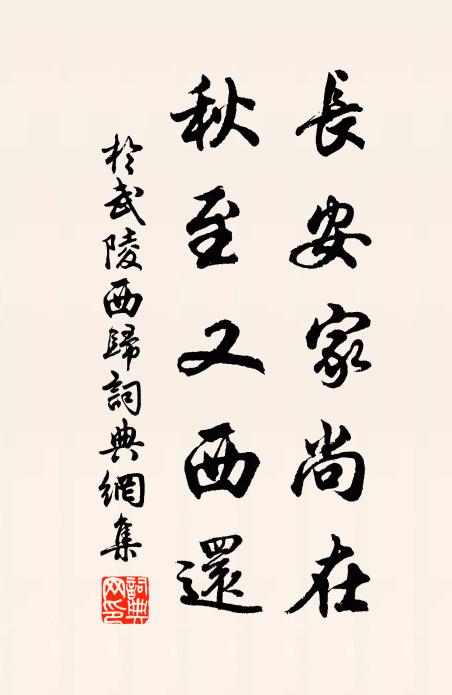 長安家尚在
秋至又西還
於武陵西歸詞典網集
詞典網印